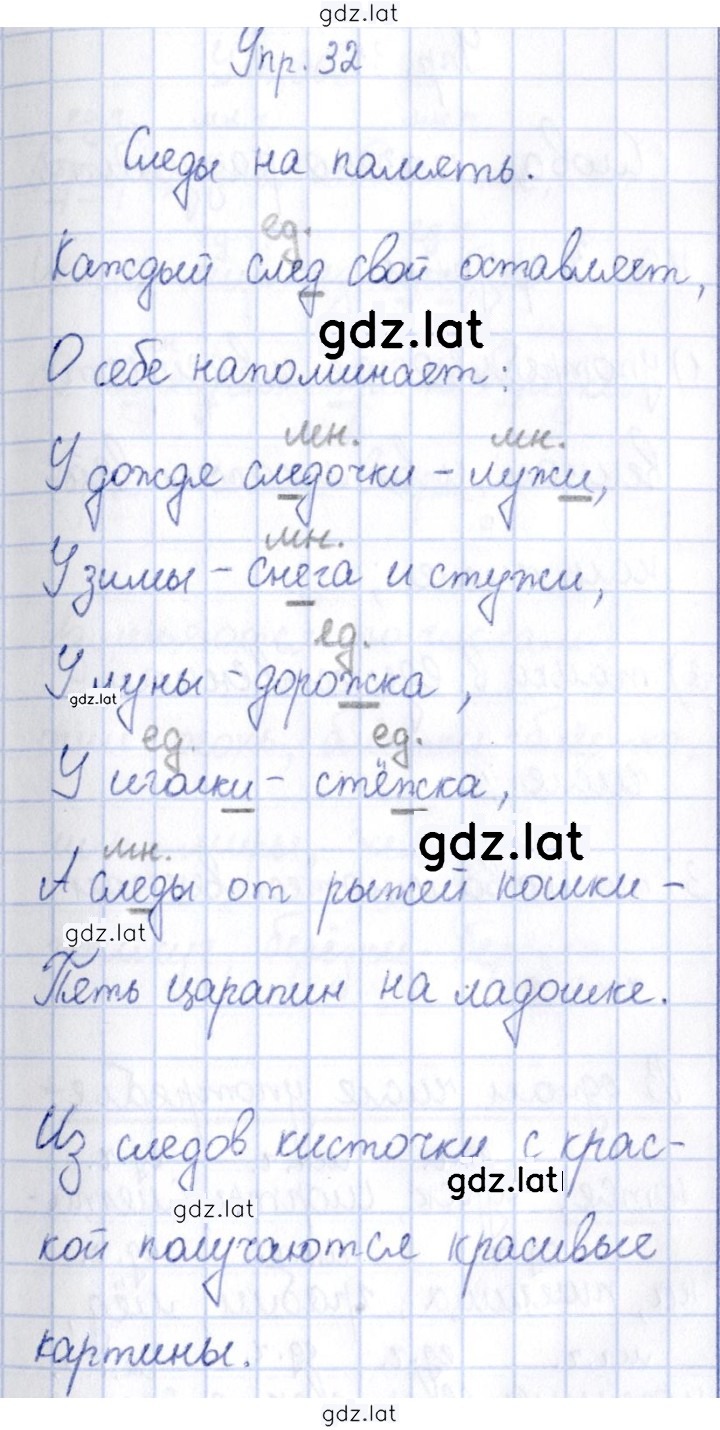 gdz.lat
Упр. 32
Следы на память.
ед.
Каждый след свой оставляет,
gdz.lat
О себе напоминает:
мн. мн.
У дождя следочки - лужи,
мн.
У зимы - снега и стужи,
ед.
У луны - дорожка,
gdz.lat
ед. ед.
У иголки - стёжка,
gdz.lat
мн.
А следы от рыжей кошки -
gdz.lat
Пять царапин на ладошке.
Из следов кисточки с крас-
gdz.lat
gdz.lat
кой получаются красивые
картины.
gdz.lat